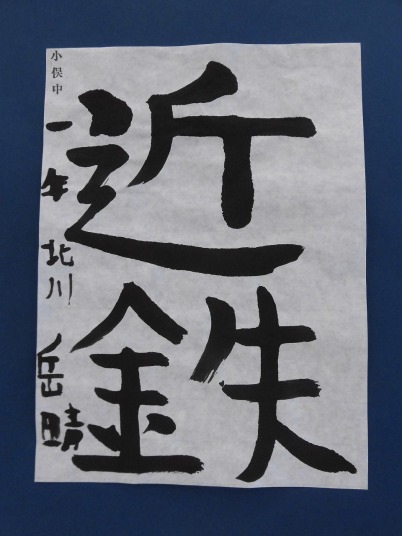 近鉄
小俣中
一年 北川 岳晴